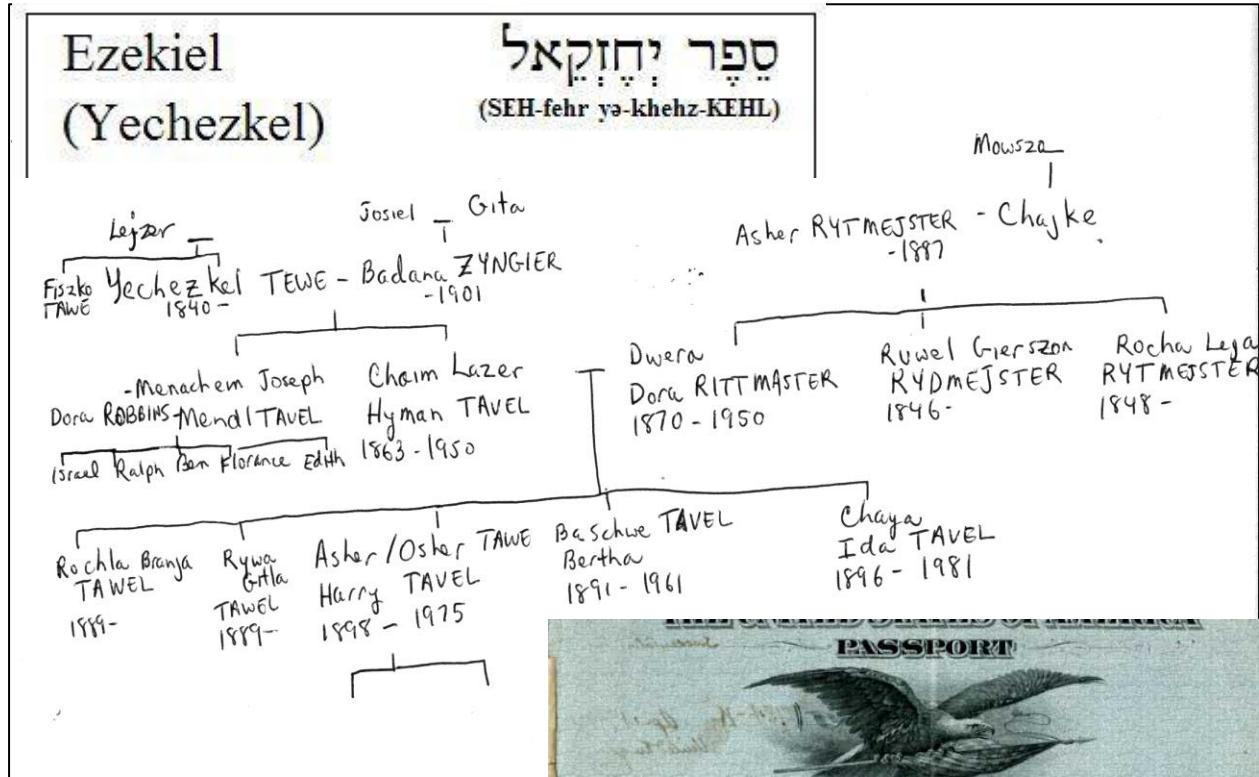 Ezekiel
(Yechezkel)
סֵפֶר יְחֶזְקֵאל
(SEH-fehr yə-khehz-KEHL)
Mowsza
Lejzer
Josiel - Gita
Asher RYTMEJSTER - Chajke
-1887
Fiszko
TAWE
Yechezkel TEWE - Badana ZYNGIER
1840-
-1901
-Menachem Joseph
Dora ROBBINS-Mendl TAVEL
Israel Ralph Ben Florance Edith
Chaim Lazer
Hyman TAVEL
1863-1950
Dwera
Dora RITTMASTER
1870-1950
Ruwel Gierszon
RYDMEJSTER
1846-
Rocha Leja
RYTMEJSTER
1848-
Rochla Branja
TAWEL
1889-
Rywa
Gitla
TAWEL
1889-
Asher/Osher TAWE
Harry TAVEL
1898-1975
BaSchwe TAVEL
Bertha
1891-1961
Chaya
Ida TAVEL
1896-1981
THE UNITED STATES OF AMERICA
PASSPORT